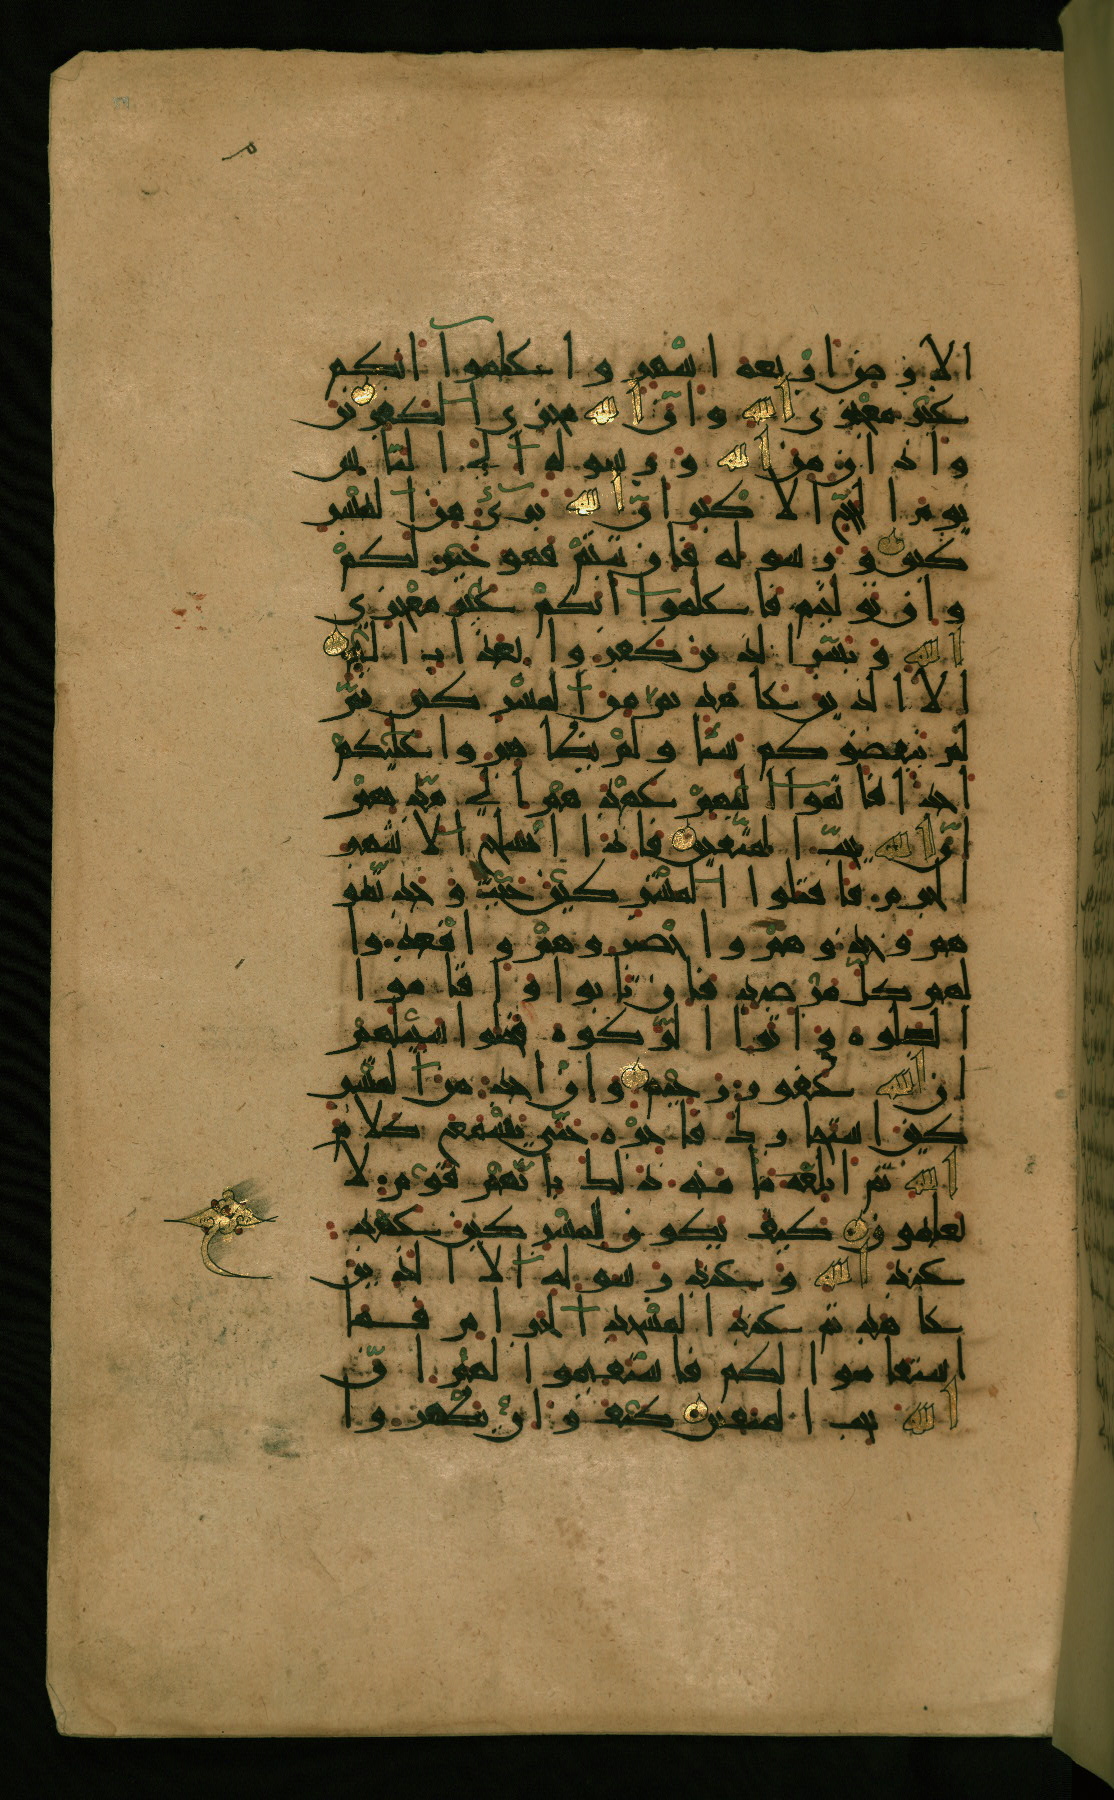 الارض اربعة اشهر واعلموا انكم
غير معجزي الله وان الله مخزي الكفرين
واذان من الله ورسوله الى الناس
يوم الحج الاكبر ان الله بريء من المشر
كين ورسوله فان تبتم فهو خير لكم
وان توليتم فاعلموا انكم غير معجزي
الله وبشر الذين كفروا بعذاب اليم
الا الذين عاهدتم من المشركين ثم
لم ينقصوكم شيا ولم يظاهروا عليكم
احدا فاتموا اليهم عهدهم الى مدتهم
ان الله يحب المتقين فاذا انسلخ الاشهر
الحرم فاقتلوا المشركين حيث وجدتمو
هم وخذوهم واحصروهم واقعدوا
لهم كل مرصد فان تابوا واقاموا
الصلوه واتوا الزكوه فخلوا سبيلهم
ان الله غفور رحيم وان احد من المشر
كين استجارك فاجره حتى يسمع كلام
الله ثم ابلغه مامنه ذلك بانهم قوم لا
يعلمون كيف يكون للمشركين عهد
عند الله وعند رسوله الا الذين
عاهدتم عند المسجد الحرام فما
استقاموا لكم فاستقيموا لهم ان
الله يحب المتقين كيف وان يظهروا